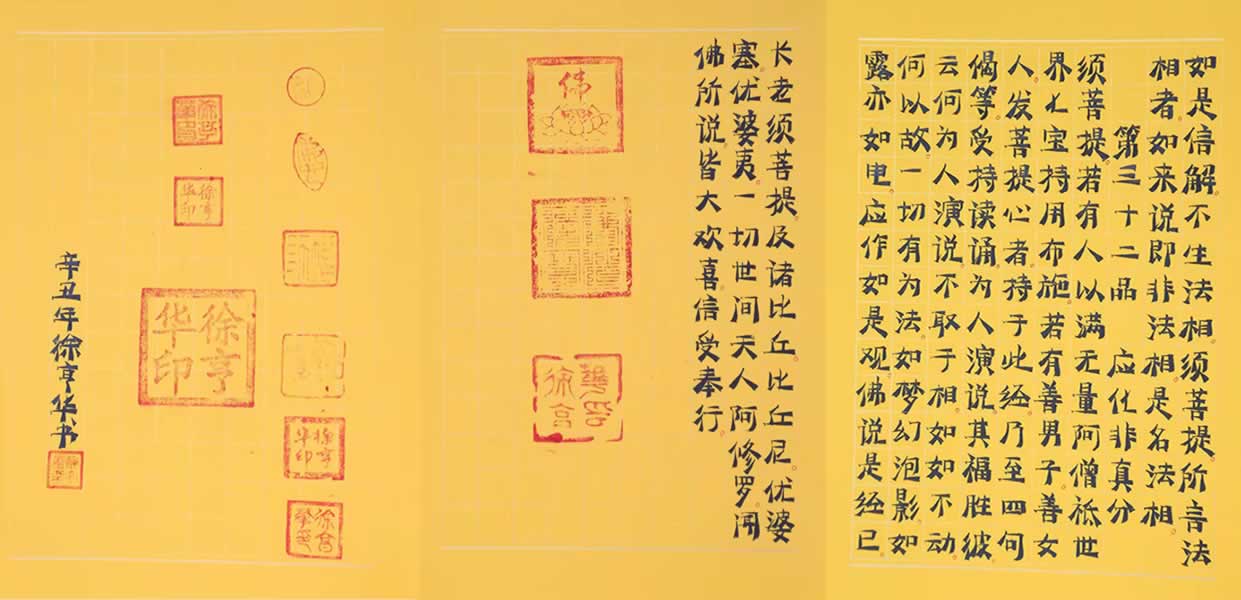 如是信解不生法相须菩提所言法
相者如来说即非法相是名法相
第三十二品 应化非真分
须菩提若有人以满无量阿僧祇世
界七宝持用布施若有善男子善女
人发菩提心者持于此经乃至四句
偈等受持读诵为人演说其福胜彼
云何为人演说不取于相如如不动
何以故一切有为法如梦幻泡影如
露亦如电应作如是观佛说是经已
长老须菩提及诸比丘比丘尼优婆
塞优婆夷一切世间天人阿修罗闻
佛所说皆大欢喜信受奉行
佛
徐亨华印
徐亨华印
徐亨华印
徐亨华印
辛丑年徐亨华书